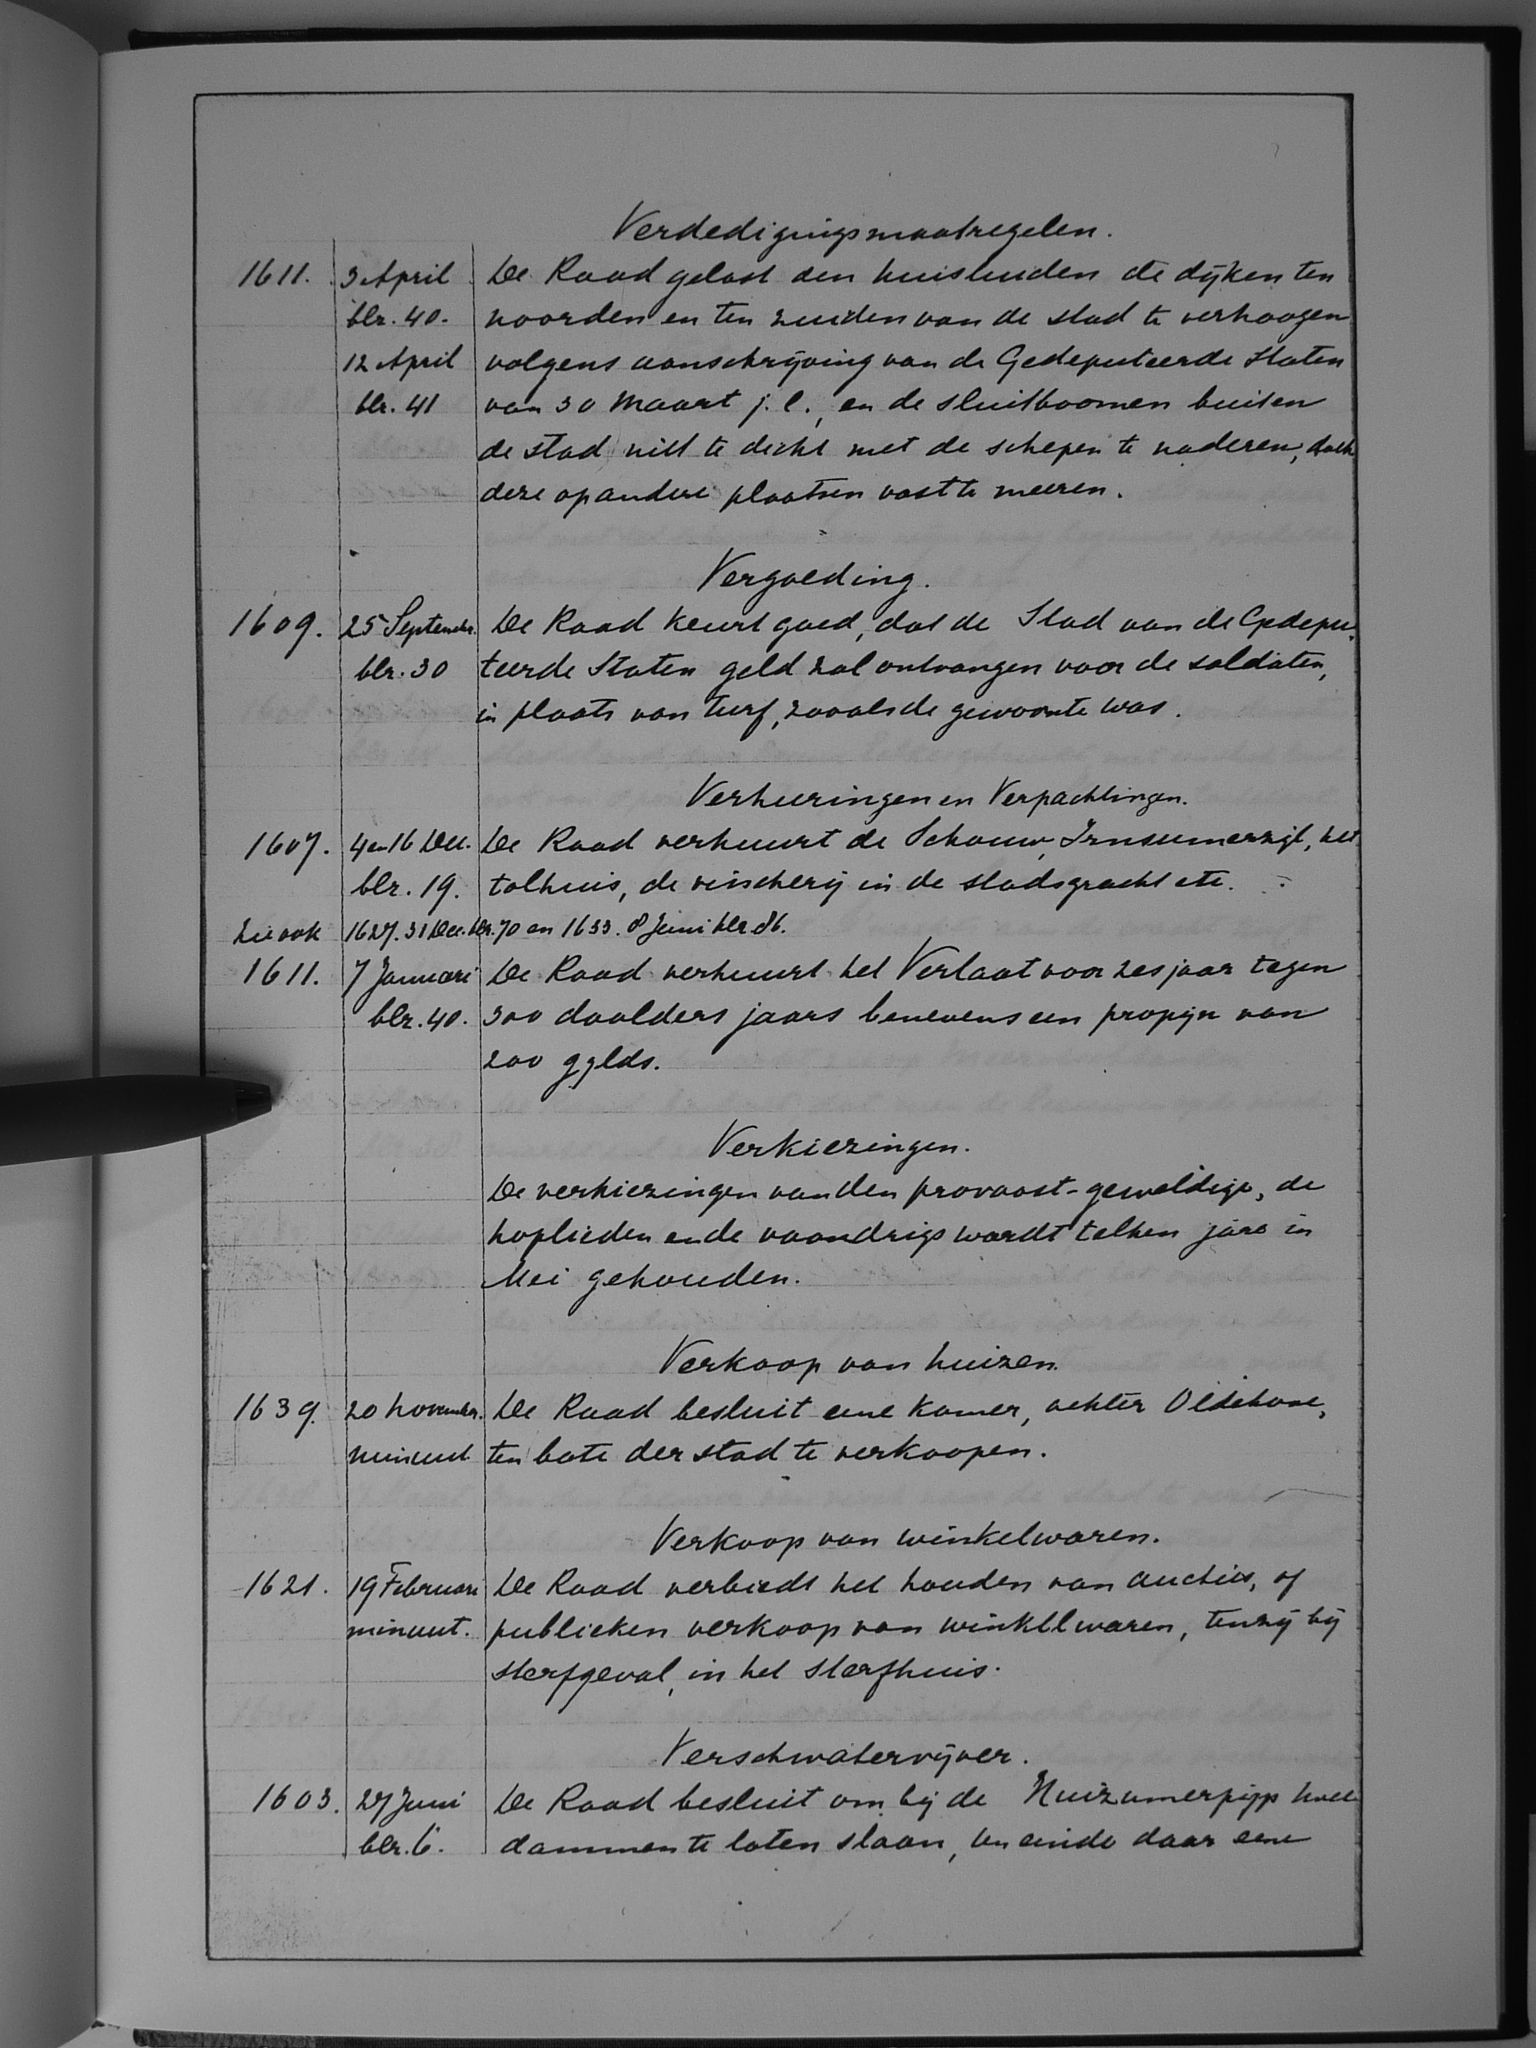 Verdedigingsmaatregelen.
1611. 3 April De Raad gelast den huislieden de dijken ten
blz. 40. noorden en ten zuiden van de stad te verhoogen
12 April volgens aanschrijving van de Gedeputeerde Staten
blz. 41 van 30 Maart j.l., en de sluitboomen buiten
de stad niet te dicht met de schepen te naderen, doch
deze op andere plaatsen vast te meeren.
Vergoeding.
1609. 25 September De Raad keurt goed, dat de Stad van de Gedepu-
blz. 30 teerde Staten geld zal ontvangen voor de soldaten,
in plaats van turf, zooals de gewoonte was.
Verhuringen en Verpachtingen.
1607. 4 en 16 Dec. De Raad verhuurt de Schouw, Irnsumerzijl, het
blz. 19. tolhuis, de visscherij in de stadsgracht etc.
Zie ook 1627. 31 Dec. blz. 70 en 1633. 8 Juni blz. 86.
1611. 7 Januari De Raad verhuurt het Verlaat voor zes jaar tegen
blz. 40. 300 daalders jaars benevens een propijn van
200 g glds.
Verkiezingen.
De verkiezingen van den provoost-geweldige, de
hoplieden en de vaandrigs wordt telken jare in
Mei gehouden.
Verkoop van huizen.
1639. 20 November De Raad besluit eene kamer, achter Oldehove,
minuut ten bate der stad te verkoopen.
Verkoop van winkelwaren.
1621. 19 Februari De Raad verbiedt het houden van aucties, of
minuut. publieken verkoop van winkelwaren, tenzij bij
sterfgeval, in het sterfhuis.
Verschwatervijver.
1603. 27 Juni De Raad besluit om bij de Huizumerpijp twee
blz. 6. dammen te laten slaan, ten einde daar eene